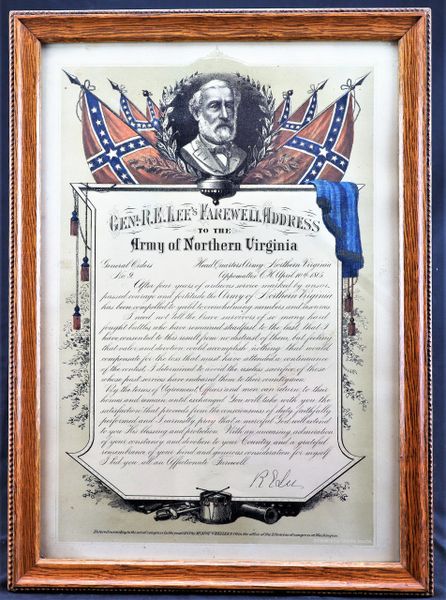 GEN. R.E. LEE'S FAREWELL ADDRESS
TO THE
Army of Northern Virginia
General Orders Head Quarters Army Northern Virginia
No 9. Appomattox C.H. April 10th 1865
After four years of arduous service marked by unsur-
passed courage and fortitude the Army of Northern Virginia
has been compelled to yield to overwhelming numbers and
I need not tell the brave survivors of so many hard
fought battles who have remained steadfast to the last that I
have consented to this result from no distrust of them, but feeling
that valor and devotion could accomplish nothing that would
compensate for the loss that must have attended a continuance
of the contest, I determined to avoid the useless sacrifice of those
whose past services have endeared them to their countrymen.
By the terms of Agreement Officers and men can return to their
homes and remain until exchanged. You will take with you the
satisfaction that proceeds from the consciousness of duty faithfully
performed and I earnestly pray that a merciful God will extend
to you His blessing and protection. With an increasing admiration
of your constancy and devotion to your Country and a grateful
remembrance of your kind and generous consideration for myself
I bid you all an Affectionate Farewell
R E Lee